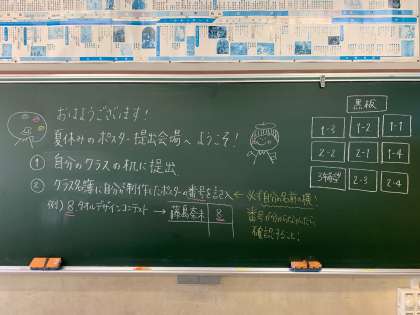 おはようございます!
夏休みのポスター提出会場へようこそ!
① 自分のクラスの机に提出
② クラス名簿に自分が制作したポスターの番号を記入 ← 必ず自分の名前の横!
例) 8 タオルデザインコンテスト → 藤島奈未 8
番号が分からなかったら
確認すること!
黒板
1-3 1-2 1-1
2-2 2-1 1-4
3年 2-3 2-4